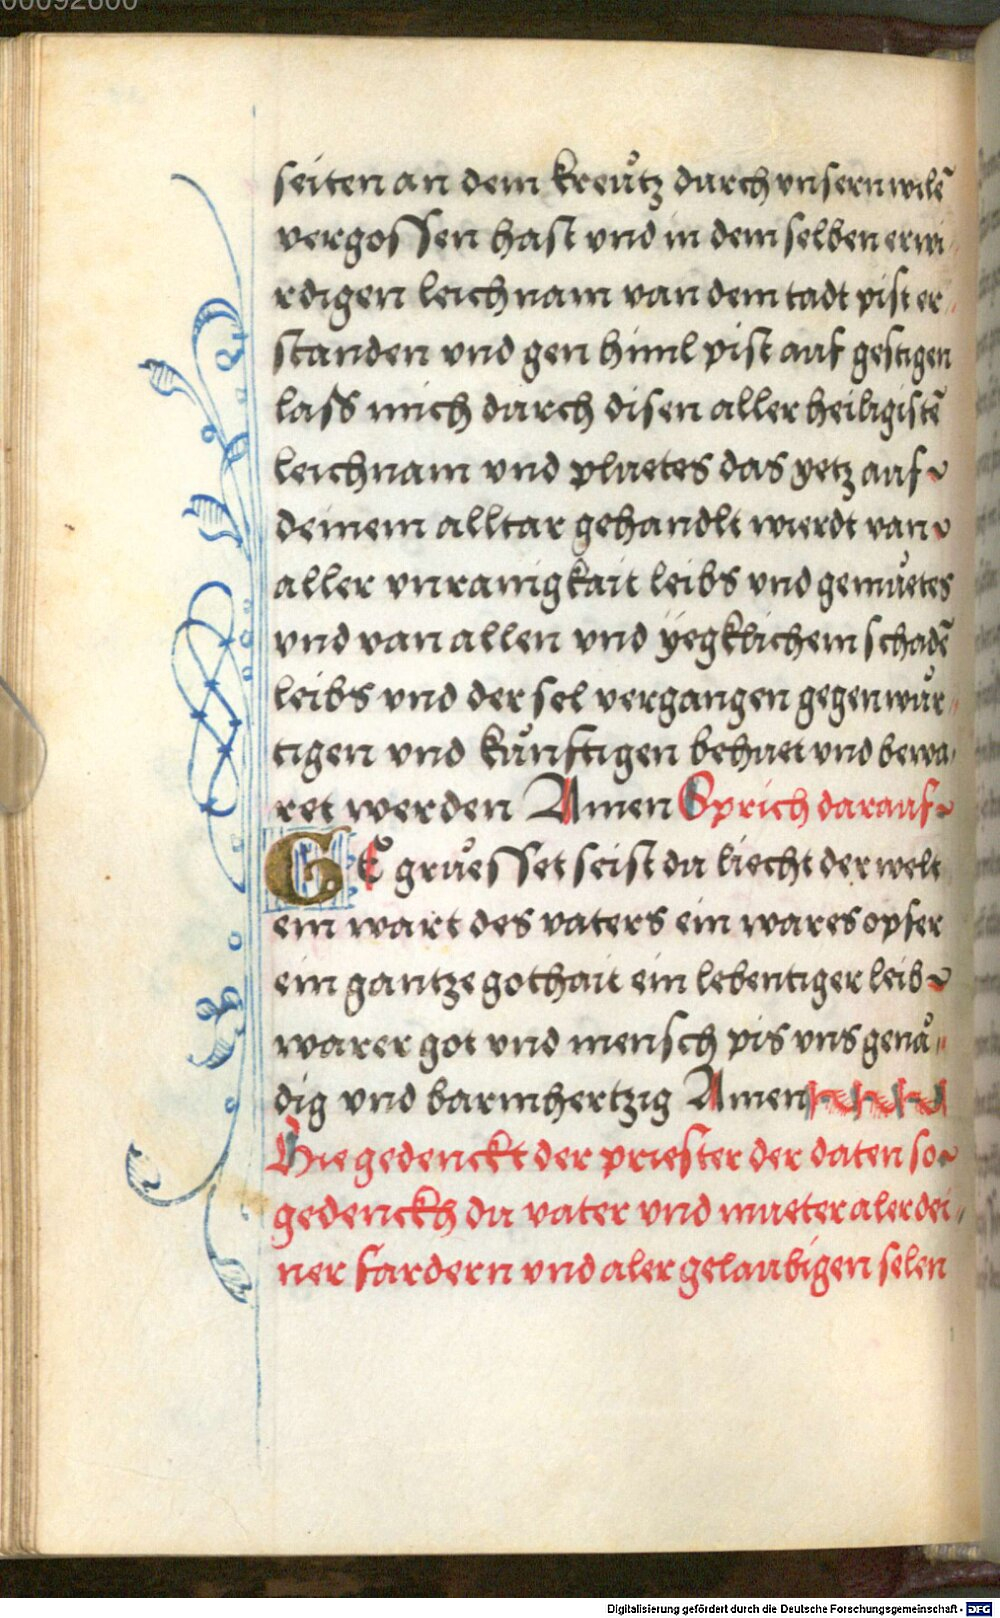 00092600
seiten an dem kreůtz durch unsern wilē
vergossen hast und in dem selben erwi
rdigen leichnam van dem tadt pist er
standen und gen himl pist auf gestigen
lass mich durch disen aller heiligistē
leichnam und pluetes das yetz auf
deinem alltar gehandlt wierdt van
aller unrainigkait leibs und gemůetes
und van allen und yegklichem schadē
leibs und der sel vergangen gegenwůr
tigen und kůnftigen behuet und bewa
ret werden Amen Sprich darauf
GE grůesset seist du liecht der welt
ein wart des vaters ein wares opfer
ein gantze gothait ein lebentiger leib
warer got und mensch pis uns genå
dig und barmhertzig Amen
Hie gedenckt der priester der daten so
gedenckh du vater und mueter aler dei
ner fardern und aler gelaubigen selen
Digitalisierung gefördert durch die Deutsche Forschungsgemeinschaft - DFG